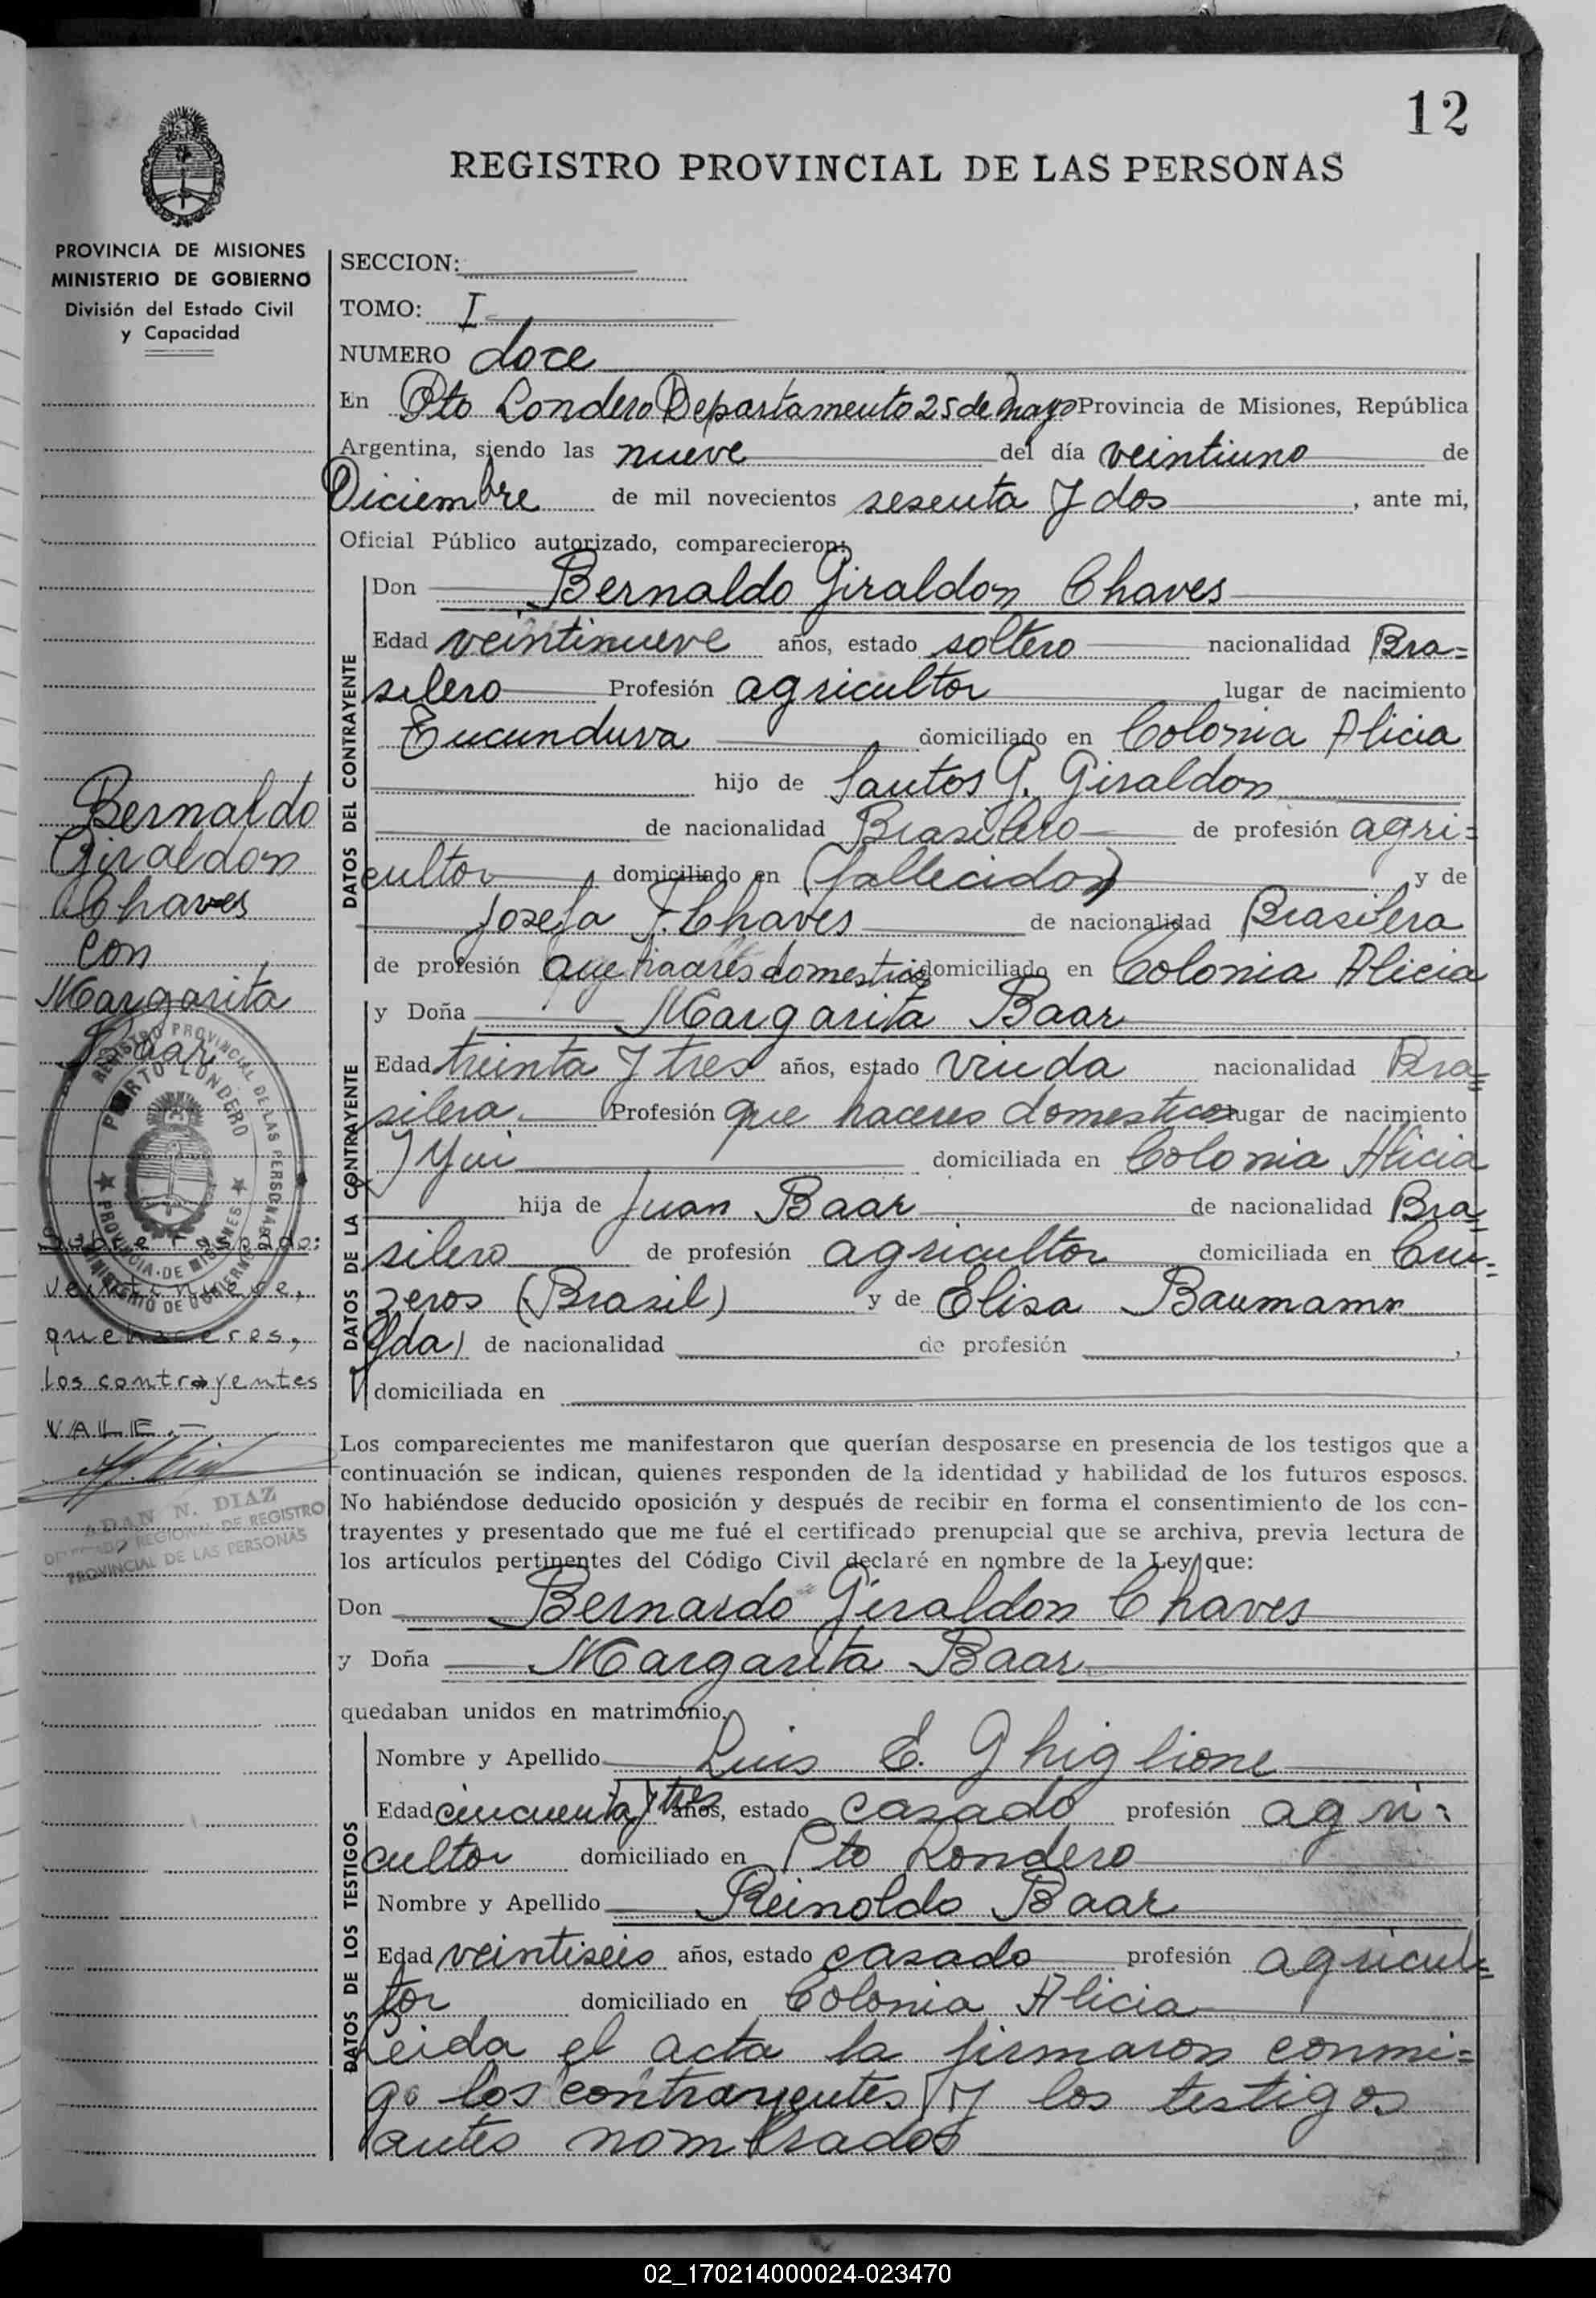 12
REGISTRO PROVINCIAL DE LAS PERSONAS
PROVINCIA DE MISIONES
MINISTERIO DE GOBIERNO
División del Estado Civil
y Capacidad
SECCION:
TOMO: I
NUMERO doce
En Pto Londero Departamento 25 de Mayo Provincia de Misiones, República
Argentina, siendo las nueve del día veintiuno de
Diciembre de mil novecientos sesenta y dos, ante mi,
Oficial Público autorizado, comparecieron:
DATOS DEL CONTRAYENTE
Don Bernaldo Giraldon Chaves
Edad veintinueve años, estado soltero nacionalidad Bra=
silero Profesión agricultor lugar de nacimiento
Tucunduva domiciliado en Colonia Alicia
hijo de Santos G. Giraldon
de nacionalidad Brasilero de profesión agri=
cultor domiciliado en (fallecidos) y de
Josefa F. Chaves de nacionalidad Brasilera
de profesión quehaceres domesticos domiciliado en Colonia Alicia
DATOS DE LA CONTRAYENTE
y Doña Margarita Baar
Edad treinta y tres años, estado viuda nacionalidad Bra=
silera Profesión que haceres domesticos lugar de nacimiento
Yjui domiciliada en Colonia Alicia
hija de Juan Baar de nacionalidad Bra=
silero de profesión agricultor domiciliada en Cru=
zeros (Brasil) y de Elisa Baumann
(fda) de nacionalidad de profesión ,
domiciliada en
Los comparecientes me manifestaron que querían desposarse en presencia de los testigos que a
continuación se indican, quienes responden de la identidad y habilidad de los futuros esposos.
No habiéndose deducido oposición y después de recibir en forma el consentimiento de los con-
trayentes y presentado que me fué el certificado prenupcial que se archiva, previa lectura de
los artículos pertinentes del Código Civil declaré en nombre de la Ley que:
Don Bernardo Giraldon Chaves
y Doña Margarita Baar
quedaban unidos en matrimonio.
DATOS DE LOS TESTIGOS
Nombre y Apellido Luis E. Ghiglione
Edad cincuenta y tres años, estado casado profesión agri=
cultor domiciliado en Pto Londero
Nombre y Apellido Reinoldo Baar
Edad veintiseis años, estado casado profesión agricul=
tor domiciliado en Colonia Alicia
Leida el acta la firmaron conmi=
go los contrayentes y los testigos
antes nombrados
Bernaldo
Giraldon
Chaves
con
Margarita
Baar
REGISTRO PROVINCIAL DE LAS PERSONAS
PUERTO LONDERO
PROVINCIA DE MISIONES
MINISTERIO DE GOBIERNO
Sobre raspado:
veintinueve,
quehaceres,
los contrayentes
VALE.-
ADAN N. DIAZ
DELEGADO REGIONAL DE REGISTRO
PROVINCIAL DE LAS PERSONAS
02_170214000024-023470